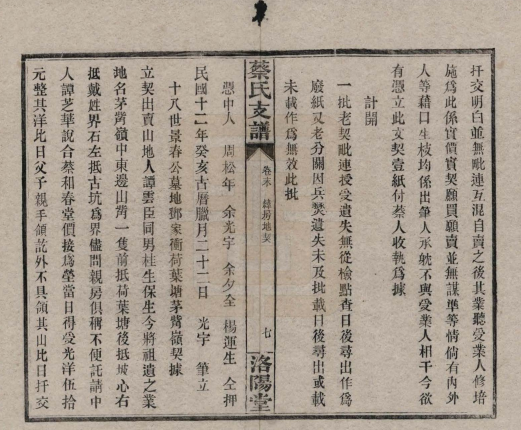 扞交明白並無毗連互混自賣之後其業聽受業人修培
施爲此係實價實契願買願賣並無謀準等情倘有內外
人等藉口生枝均係出筆人承躭不與受業人相干今欲
有憑立此文契壹紙付蔡人收執爲據
計開
一批老契毗連授受遺失無從檢點查日後尋出作爲
廢紙又老分關因兵焚遺失未及批載日後尋出或載
未載作爲無效此批
蔡氏支譜
卷末
錄房地契
七
洛陽堂
憑中人 周松年 余光宇 余夕全 楊運生 仝押
民國十二年癸亥古曆臘月二十二日 光宇 筆立
十八世景春公墓地鄧家衝荷葉塘茅鷲嶺契據
立契出賣山地人譚雲臣同男桂生保生今將祖遺之業
地名茅鷲嶺中東邊山脊一隻前抵荷葉塘後抵坡心右
抵戴姓界石左抵古坑爲界儘問親房俱稱不便託請中
人譚芝華說合蔡和春堂價接爲塋當日得受光洋伍拾
元整其洋比日父子親手領訖外不具領其山比日扞交